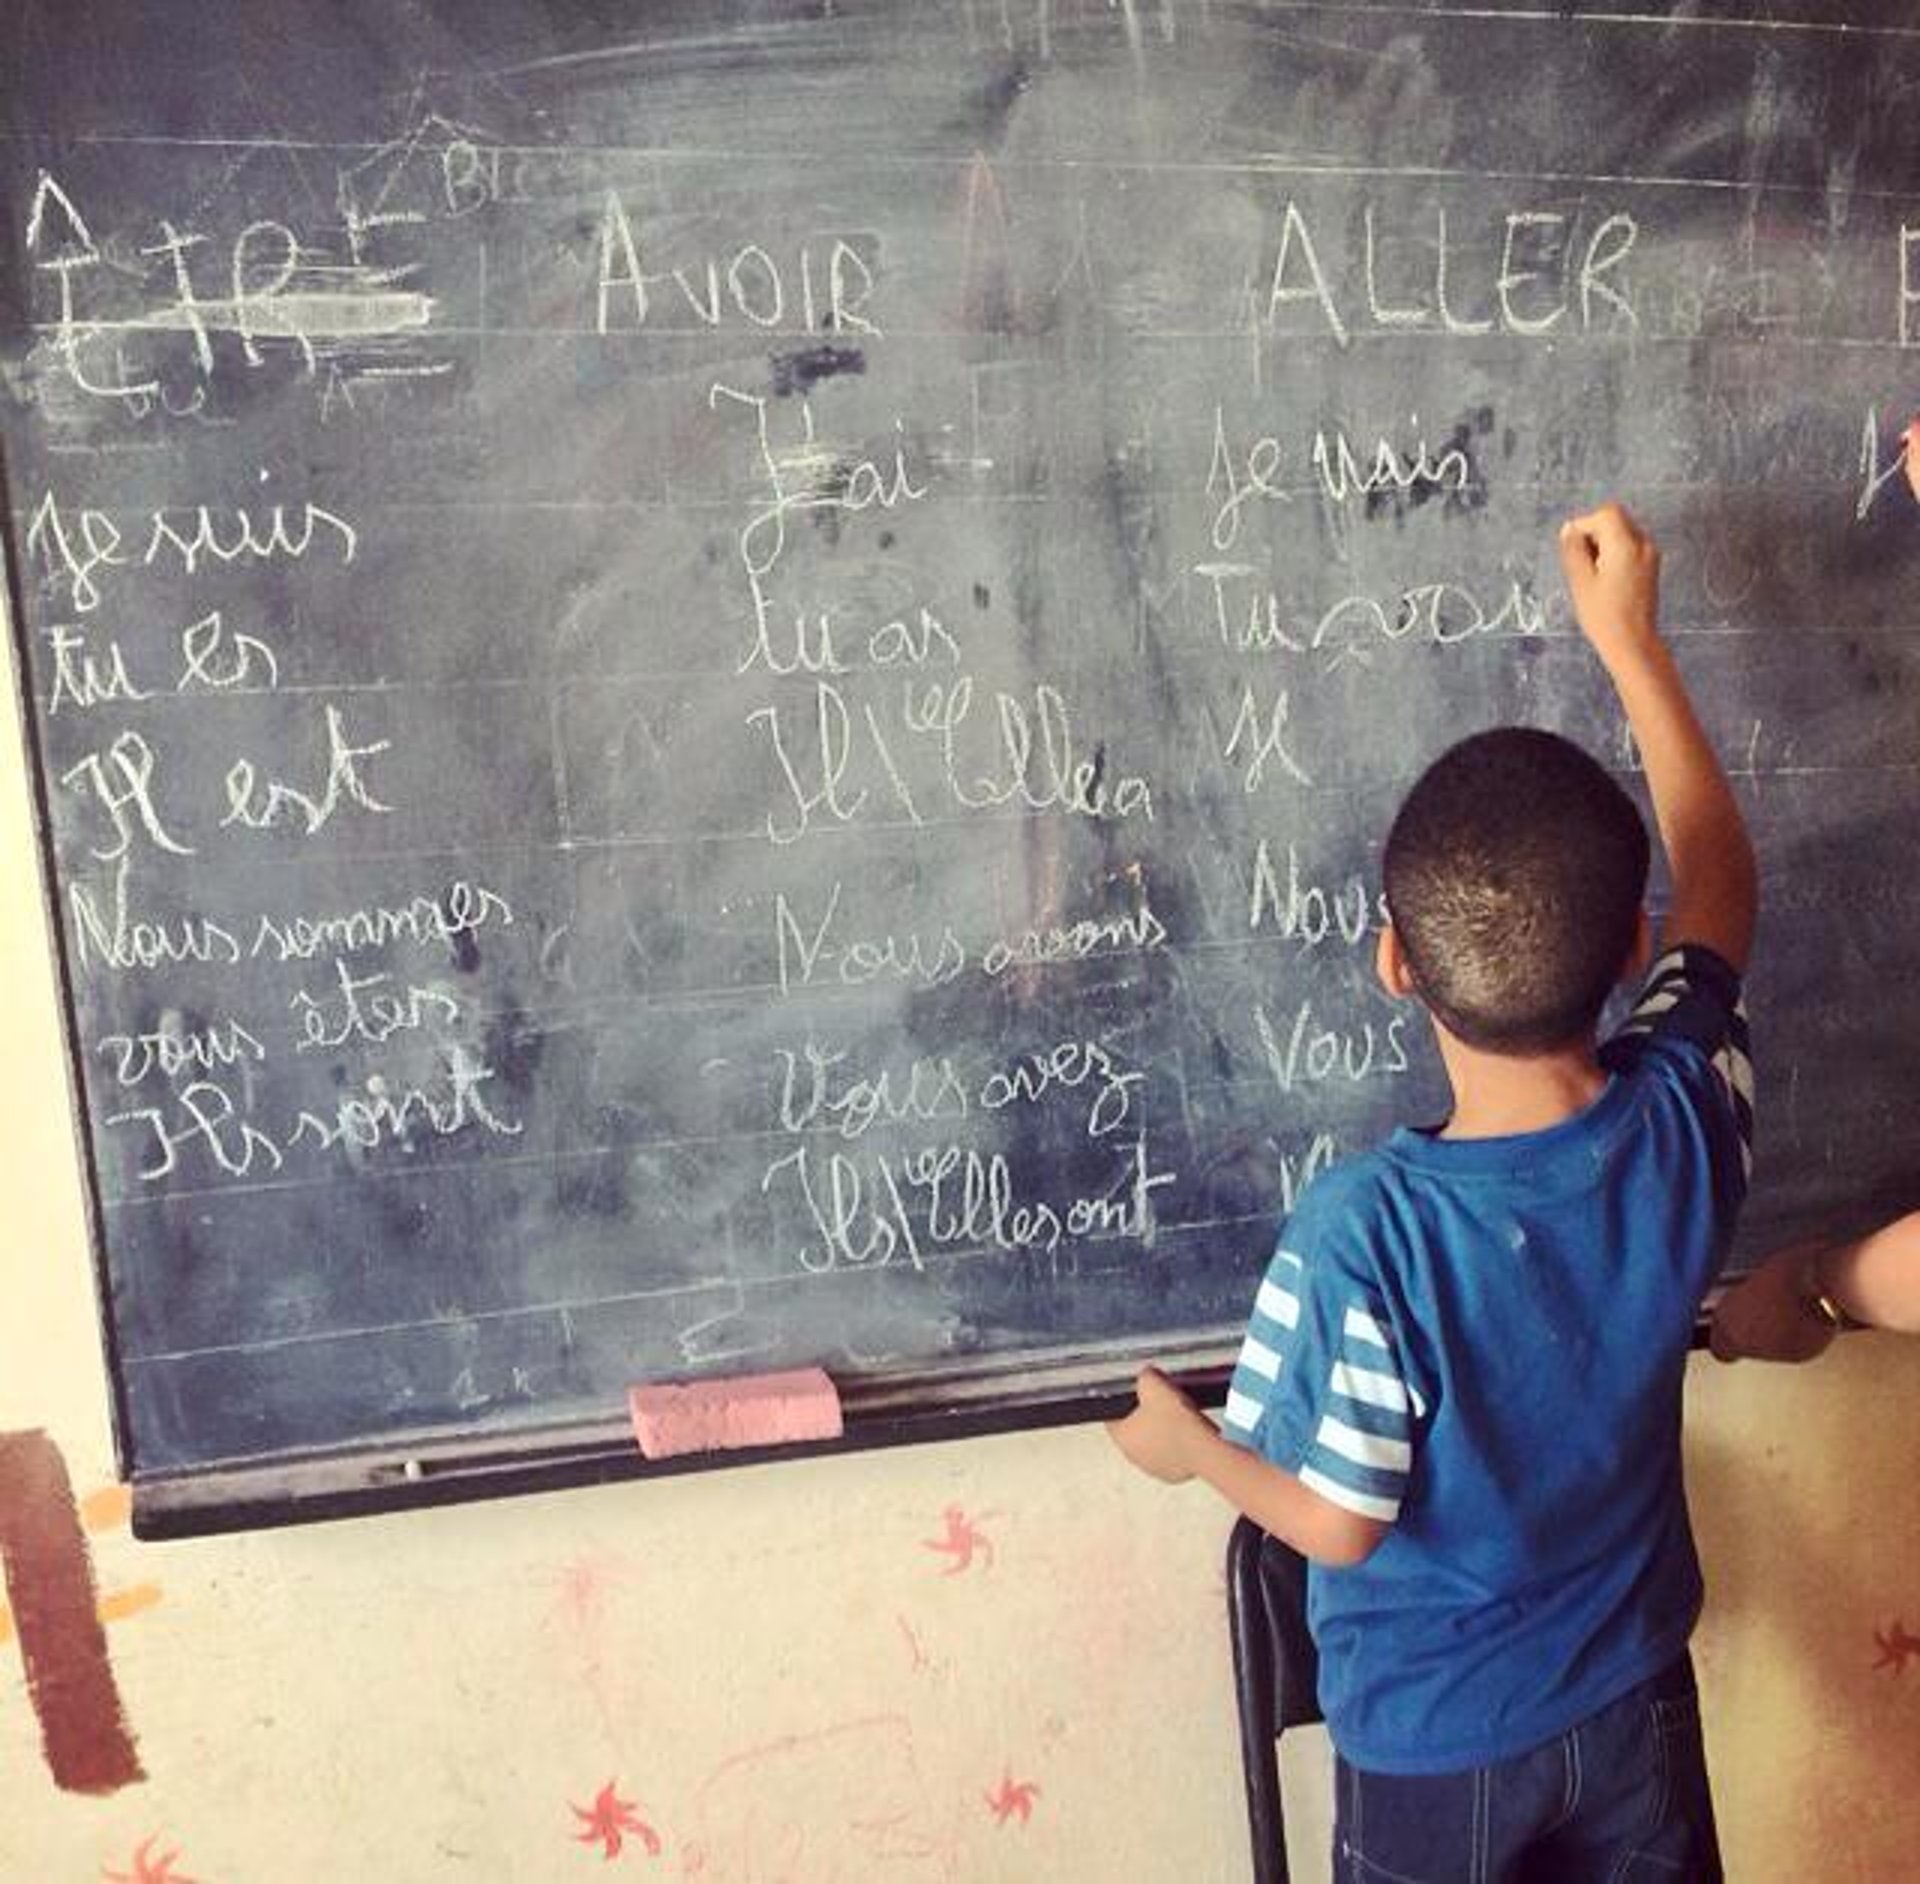 ÊTRE AVOIR ALLER
Je suis
tu es
Il est
Nous sommes
vous êtes
Ils sont
J'ai
tu as
Il\Elle a
Nous avons
Vous avez
Ils\Elles ont
Je vais
Tu
Il
Nous
Vous